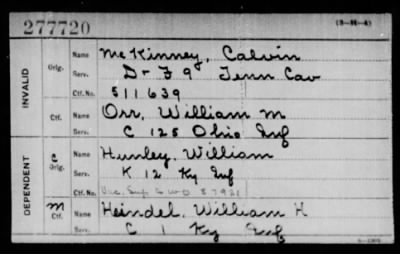 277720
(3-36-4)
INVALID
Orig.
Name McKinney, Calvin
Serv. D & F 9 Tenn Cav
Ctf. No. 511639
Ctf.
Name Orr, William M
Serv. C 125 Ohio Inf
DEPENDENT
C
Orig.
Name Hunley, William
Serv. K 12 Ky Inf
Ctf. No.
M
Ctf.
Name Heindel, William H
Serv. C 1 Ky Inf